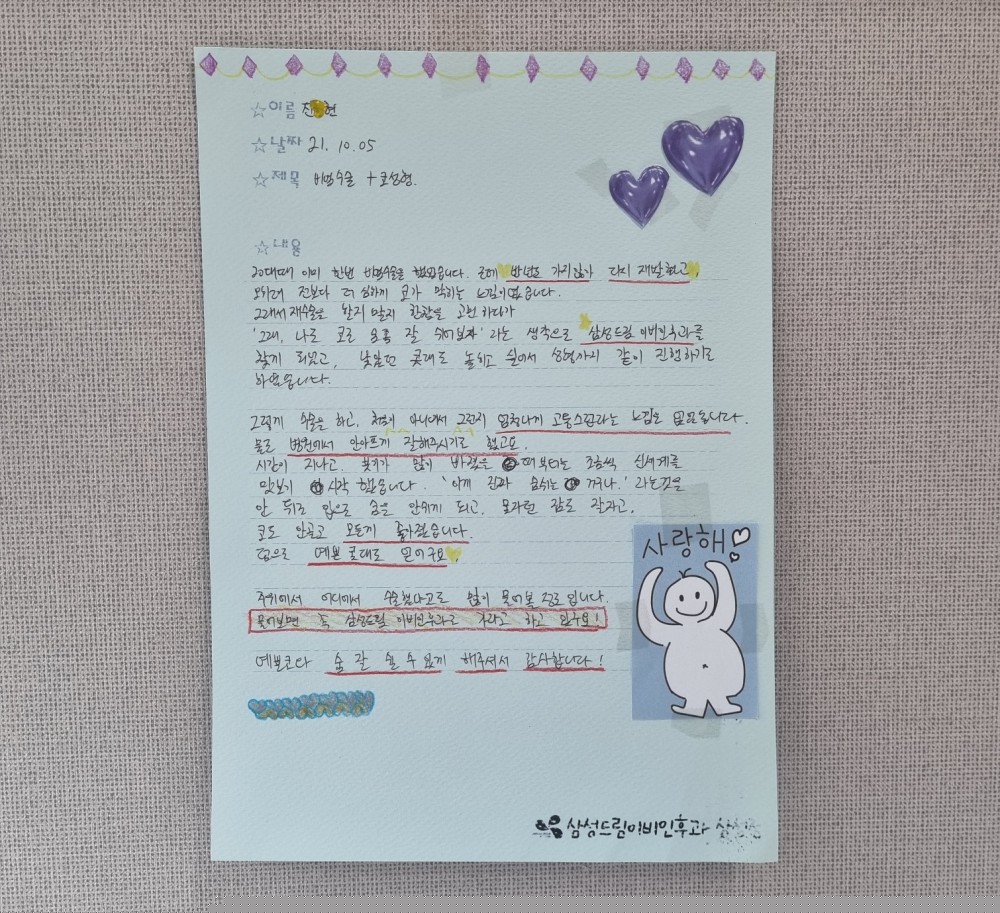 ☆이름 진 현
☆날짜 21. 10. 05
☆제목 비염수술 + 코성형.
☆내용
20대때 이미 한번 비염수술을 했었습니다. 근데 반년도 가지않아 다시 재발했고,
오히려 전보다 더 심하게 코가 막히는 느낌이었습니다.
그래서 재수술을 받지 말지 한참을 고민 하다가
'그래, 나도 코로 숨좀 잘 쉬어보자' 라는 생각으로 삼성드림 이비인후과를
찾게 되었고, 낮았던 콧대도 높히고 싶어서 성형까지 같이 진행하기로
하였습니다.
그렇게 수술을 하고, 처음이 아니여서 그런지 엄청나게 고통스럽다라는 느낌은 없었습니다.
물론 병원에서 안아프게 잘해주시기도 했고요.
시간이 지나고, 붓기가 많이 빠졌을 때부터는 조금씩 신세계를
맛보기 시작 했습니다. '아께 진짜 숨쉬는 거구나.' 라는것을
안 뒤로 입으로 숨을 안쉬게 되고, 모자란 잠도 잘자고,
코도 안골고 모든게 좋아졌습니다.
덤으로 예쁜 콧대도 얻어구요
주위에서 어디에서 수술했냐고도 많이 물어볼 정도 입니다.
물어보면 꼭 삼성드림 이비인후과로 가라고 하고 있구요!
예쁜코다 숨 잘 쉴 수 있게 해주셔서 감사합니다!
사랑해
삼성드림이비인후과